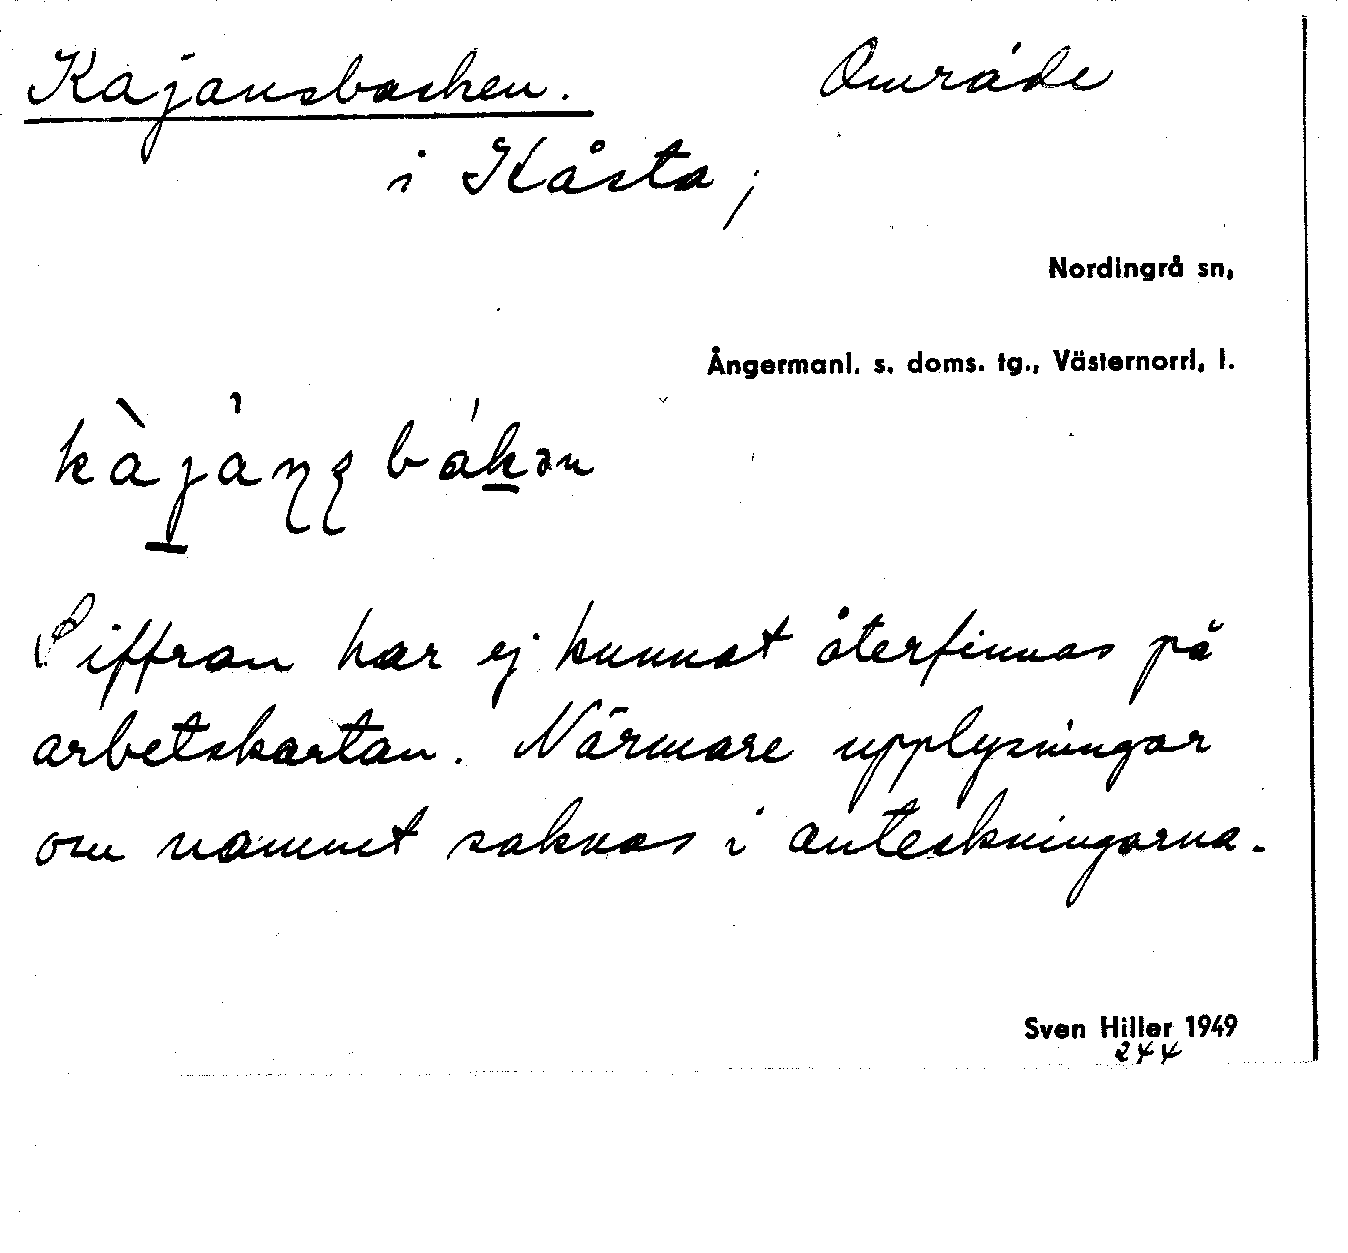 Kajansbacken. Område
i Kåsta,
Nordingrå sn,
Ångermanl. s. doms. tg., Västernorrl. l.
Siffran har ej kunnat återfinnas på
arbetskartan. Närmare upplysningar
om namnet saknas i anteckningarna.
Sven Hiller 1949
244